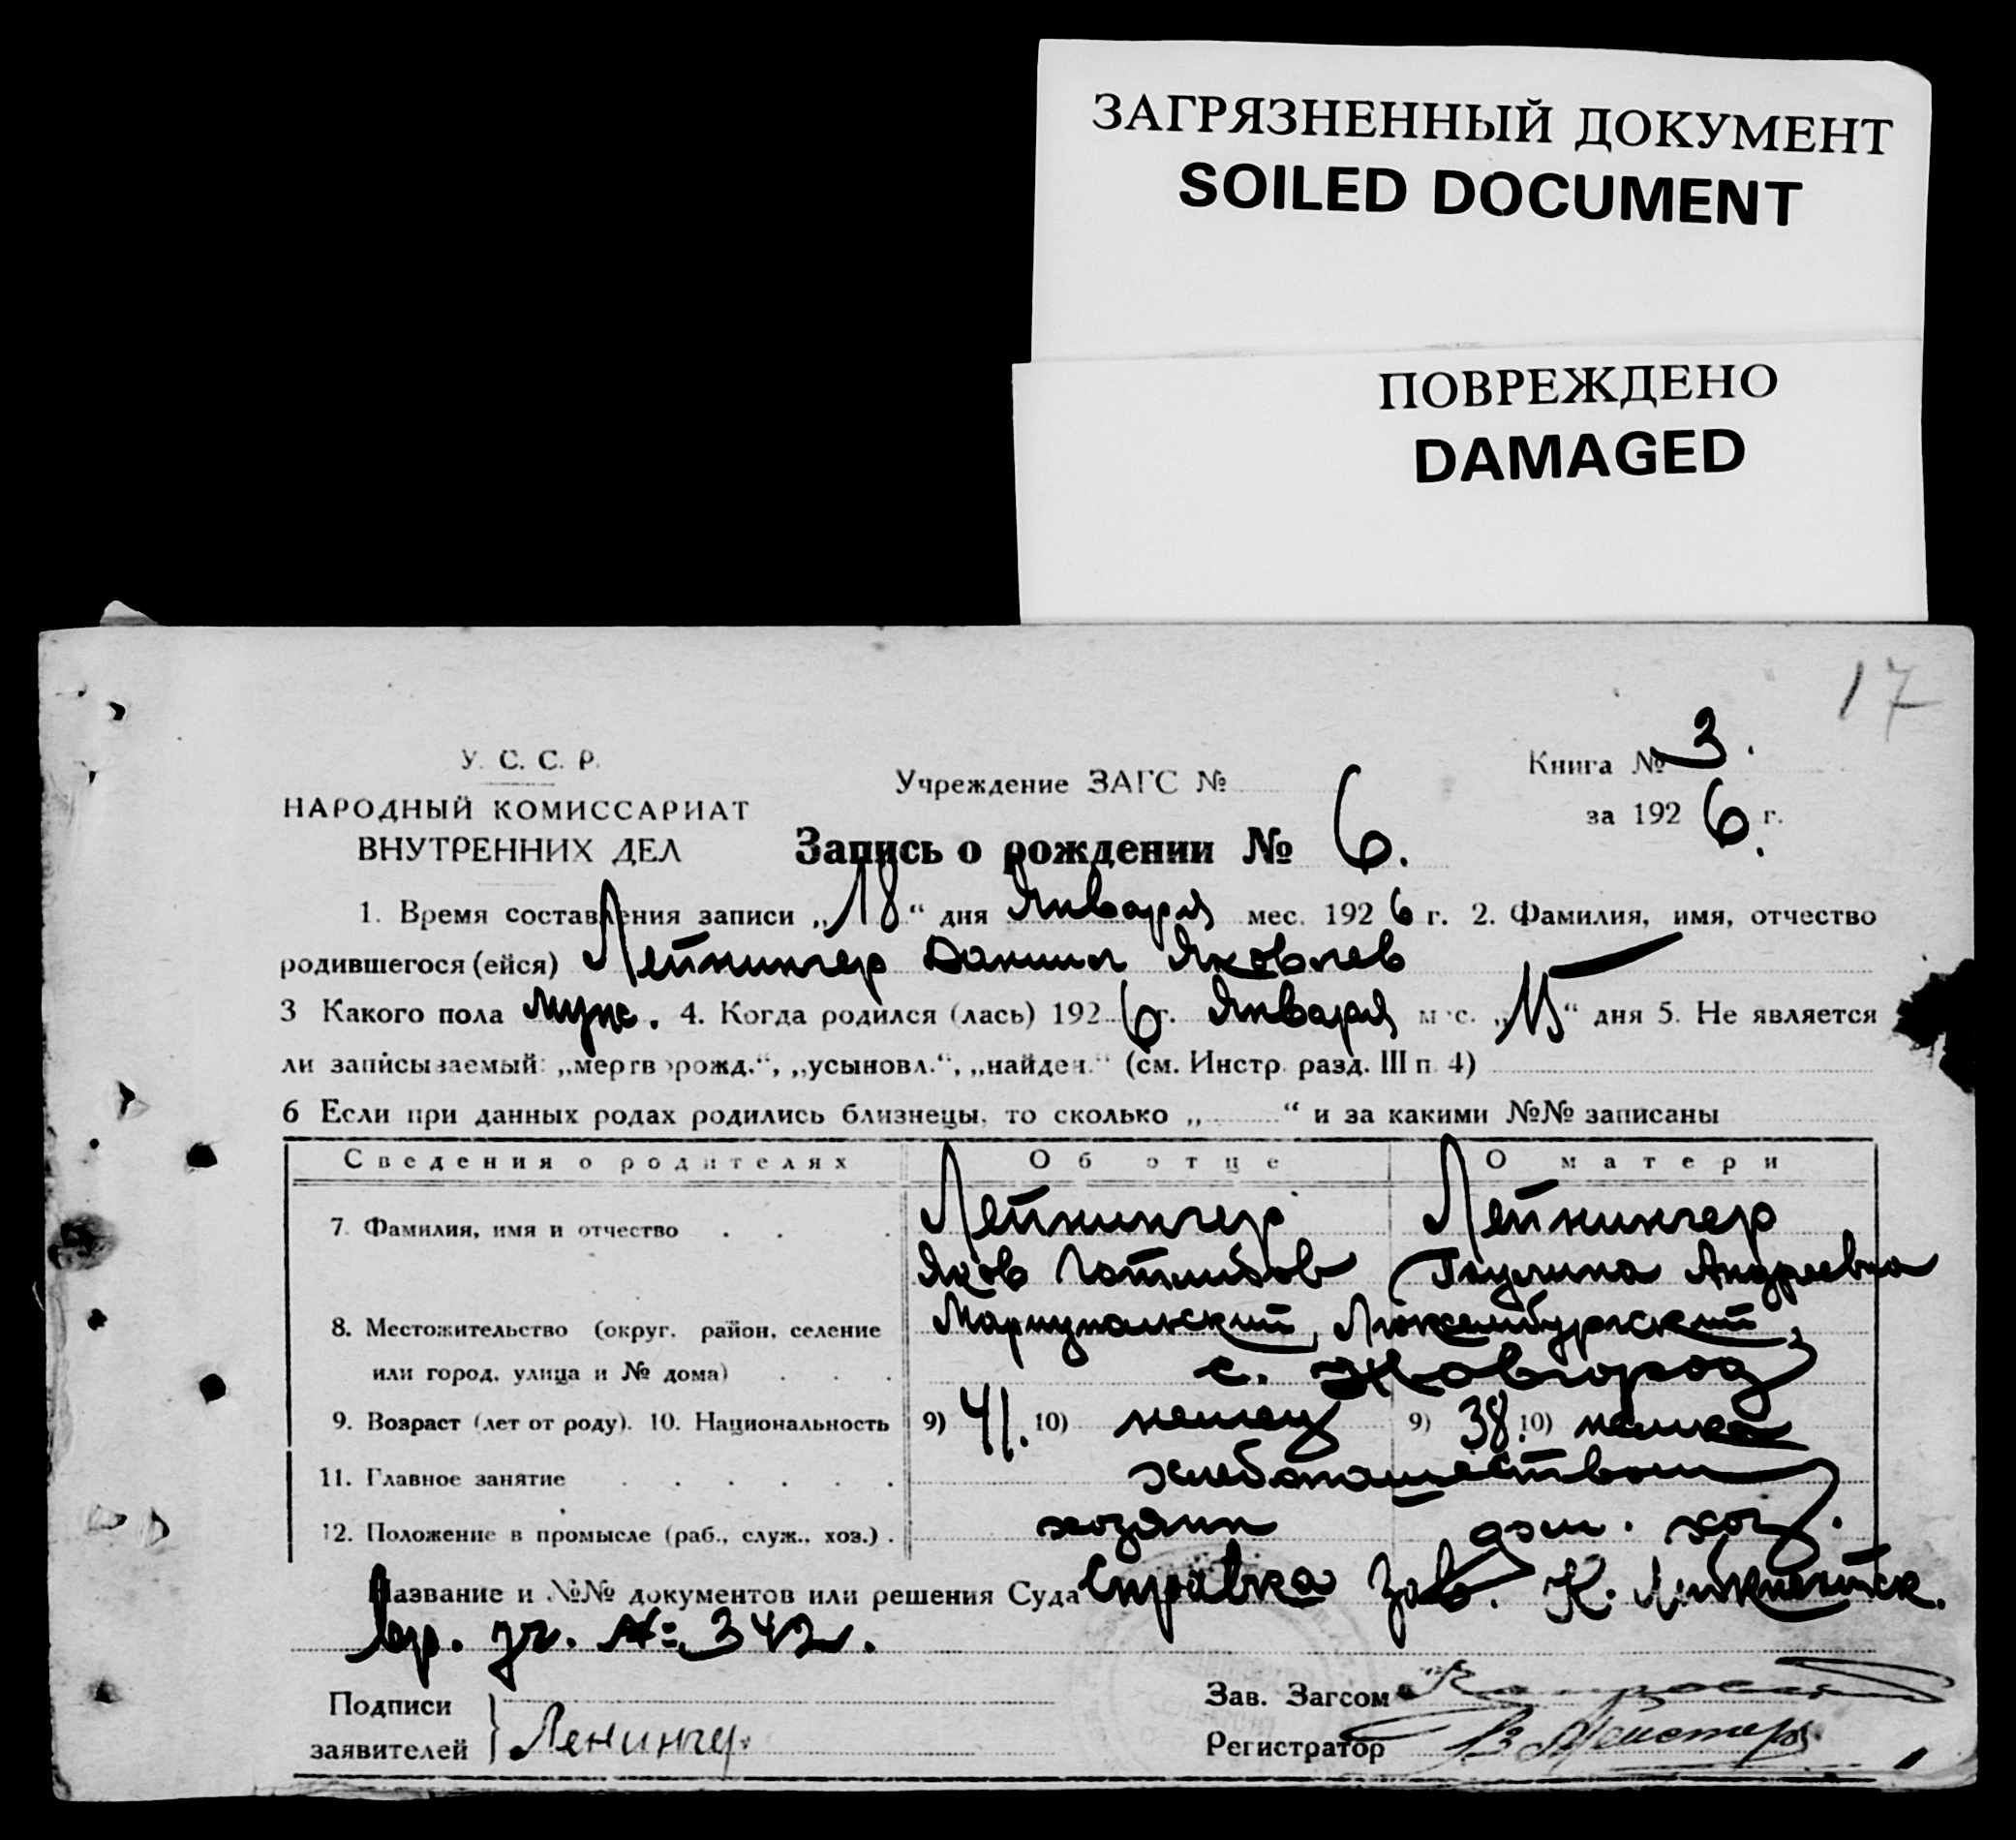 ЗАГРЯЗНЕННЫЙ ДОКУМЕНТ
SOILED DOCUMENT
ПОВРЕЖДЕНО
DAMAGED
17
У. С. С. Р.
НАРОДНЫЙ КОМИССАРИАТ
ВНУТРЕННИХ ДЕЛ
Учреждение ЗАГС №
Книга № 3.
за 1926 г.
Запись о рождении № 6.
1. Время составления записи „18“ дня Января мес. 1926 г. 2. Фамилия, имя, отчество
родившегося (ейся) Лейнингер Даниил Яковлев
3 Какого пола муж. 4. Когда родился (лась) 1926 г. Января мес. „15“ дня 5. Не является
ли записываемый: „мертворожд.“, „усыновл.“, „найден.“ (см. Инстр. разд. III п. 4)
6 Если при данных родах родились близнецы, то сколько „ “ и за какими №№ записаны
Сведения о родителях Об отце О матери
7. Фамилия, имя и отчество Лейнингер Лейнингер
Яков Готлибов Паулина Андреевна
8. Местожительство (округ, район, селение Мариупольский, Люксембургский,
или город, улица и № дома) с. Новгород
9. Возраст (лет от роду). 10. Национальность 9) 41. 10) немец 9) 38. 10) немка
11. Главное занятие хлебопашеством
12. Положение в промысле (раб., служ., хоз.) хозяин дом. хоз.
Название и №№ документов или решения Суда Справка Зав. К.
вр. уч. №= 342.
Подписи
заявителей Ленингер.
Зав. Загсом
Регистратор